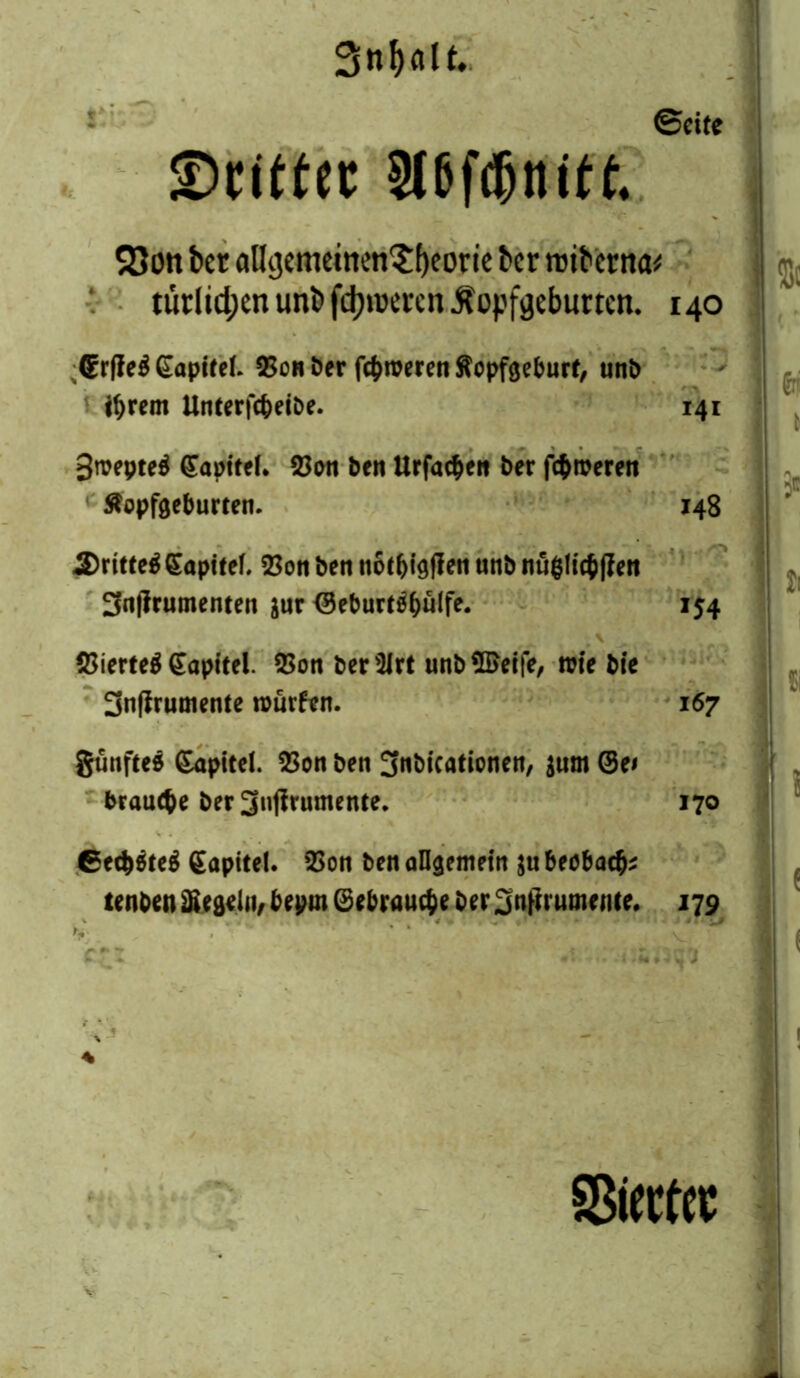 Inhalt.
Seite
Dritter Abschnitt.
Von der allgemeinen Theorie der widerna-
türlichen und schweren Kopfgeburten. 140
Erstes Capitel. Von der schweren Kopfgeburt, und
ihrem Unterscheide. 141
Zweytes Capitel. Von den Ursachen der schweren
Kopfgeburten. 148
Drittes Capitel. Von den nöthigsten und nützlichsten
Instrumenten zur Geburtshülfe. 154
Viertes Capitel. Von der Art und Weise, wie die
Instrumente würken. 167
Fünftes Capitel. Von den Indicationen, zum Ge-
brauche der Instrumente. 170
Sechstes Capitel. Von den allgemein zu beobach-
tenden Regeln, beym Gebrauche der Instrumente. 179
Vierter